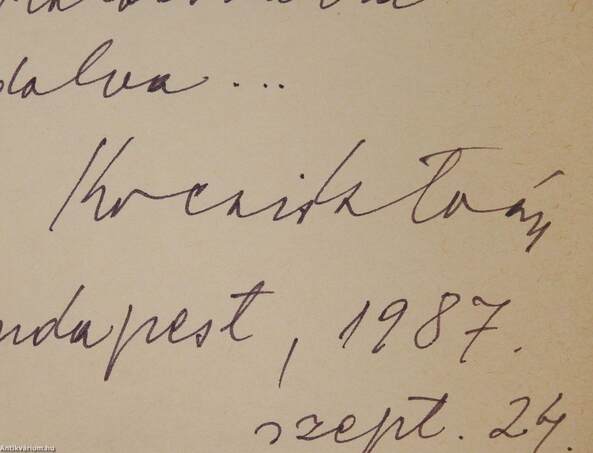 dalva ...
Kocsis István
udapest, 1987.
szept. 24.
Antikvárium.hu